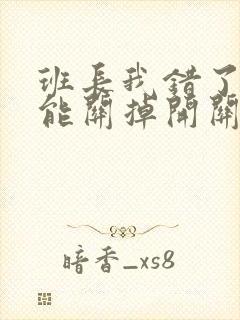 班長我錯了
能關掉開關
暗香_xs8